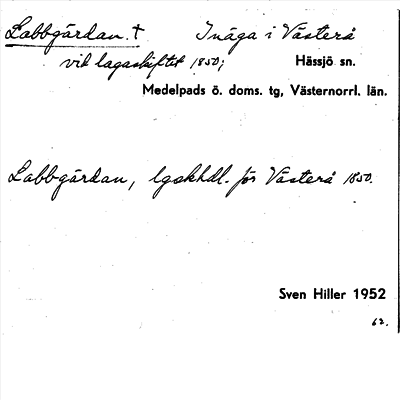 Labbgärdan. † Inäga i Västerå
vid lagaskiftet 1850; Hässjö sn.
Medelpads ö. doms. tg, Västernorrl. län.
Labbgärdan, lgskhdl. för Västerå 1850.
Sven Hiller 1952
62.